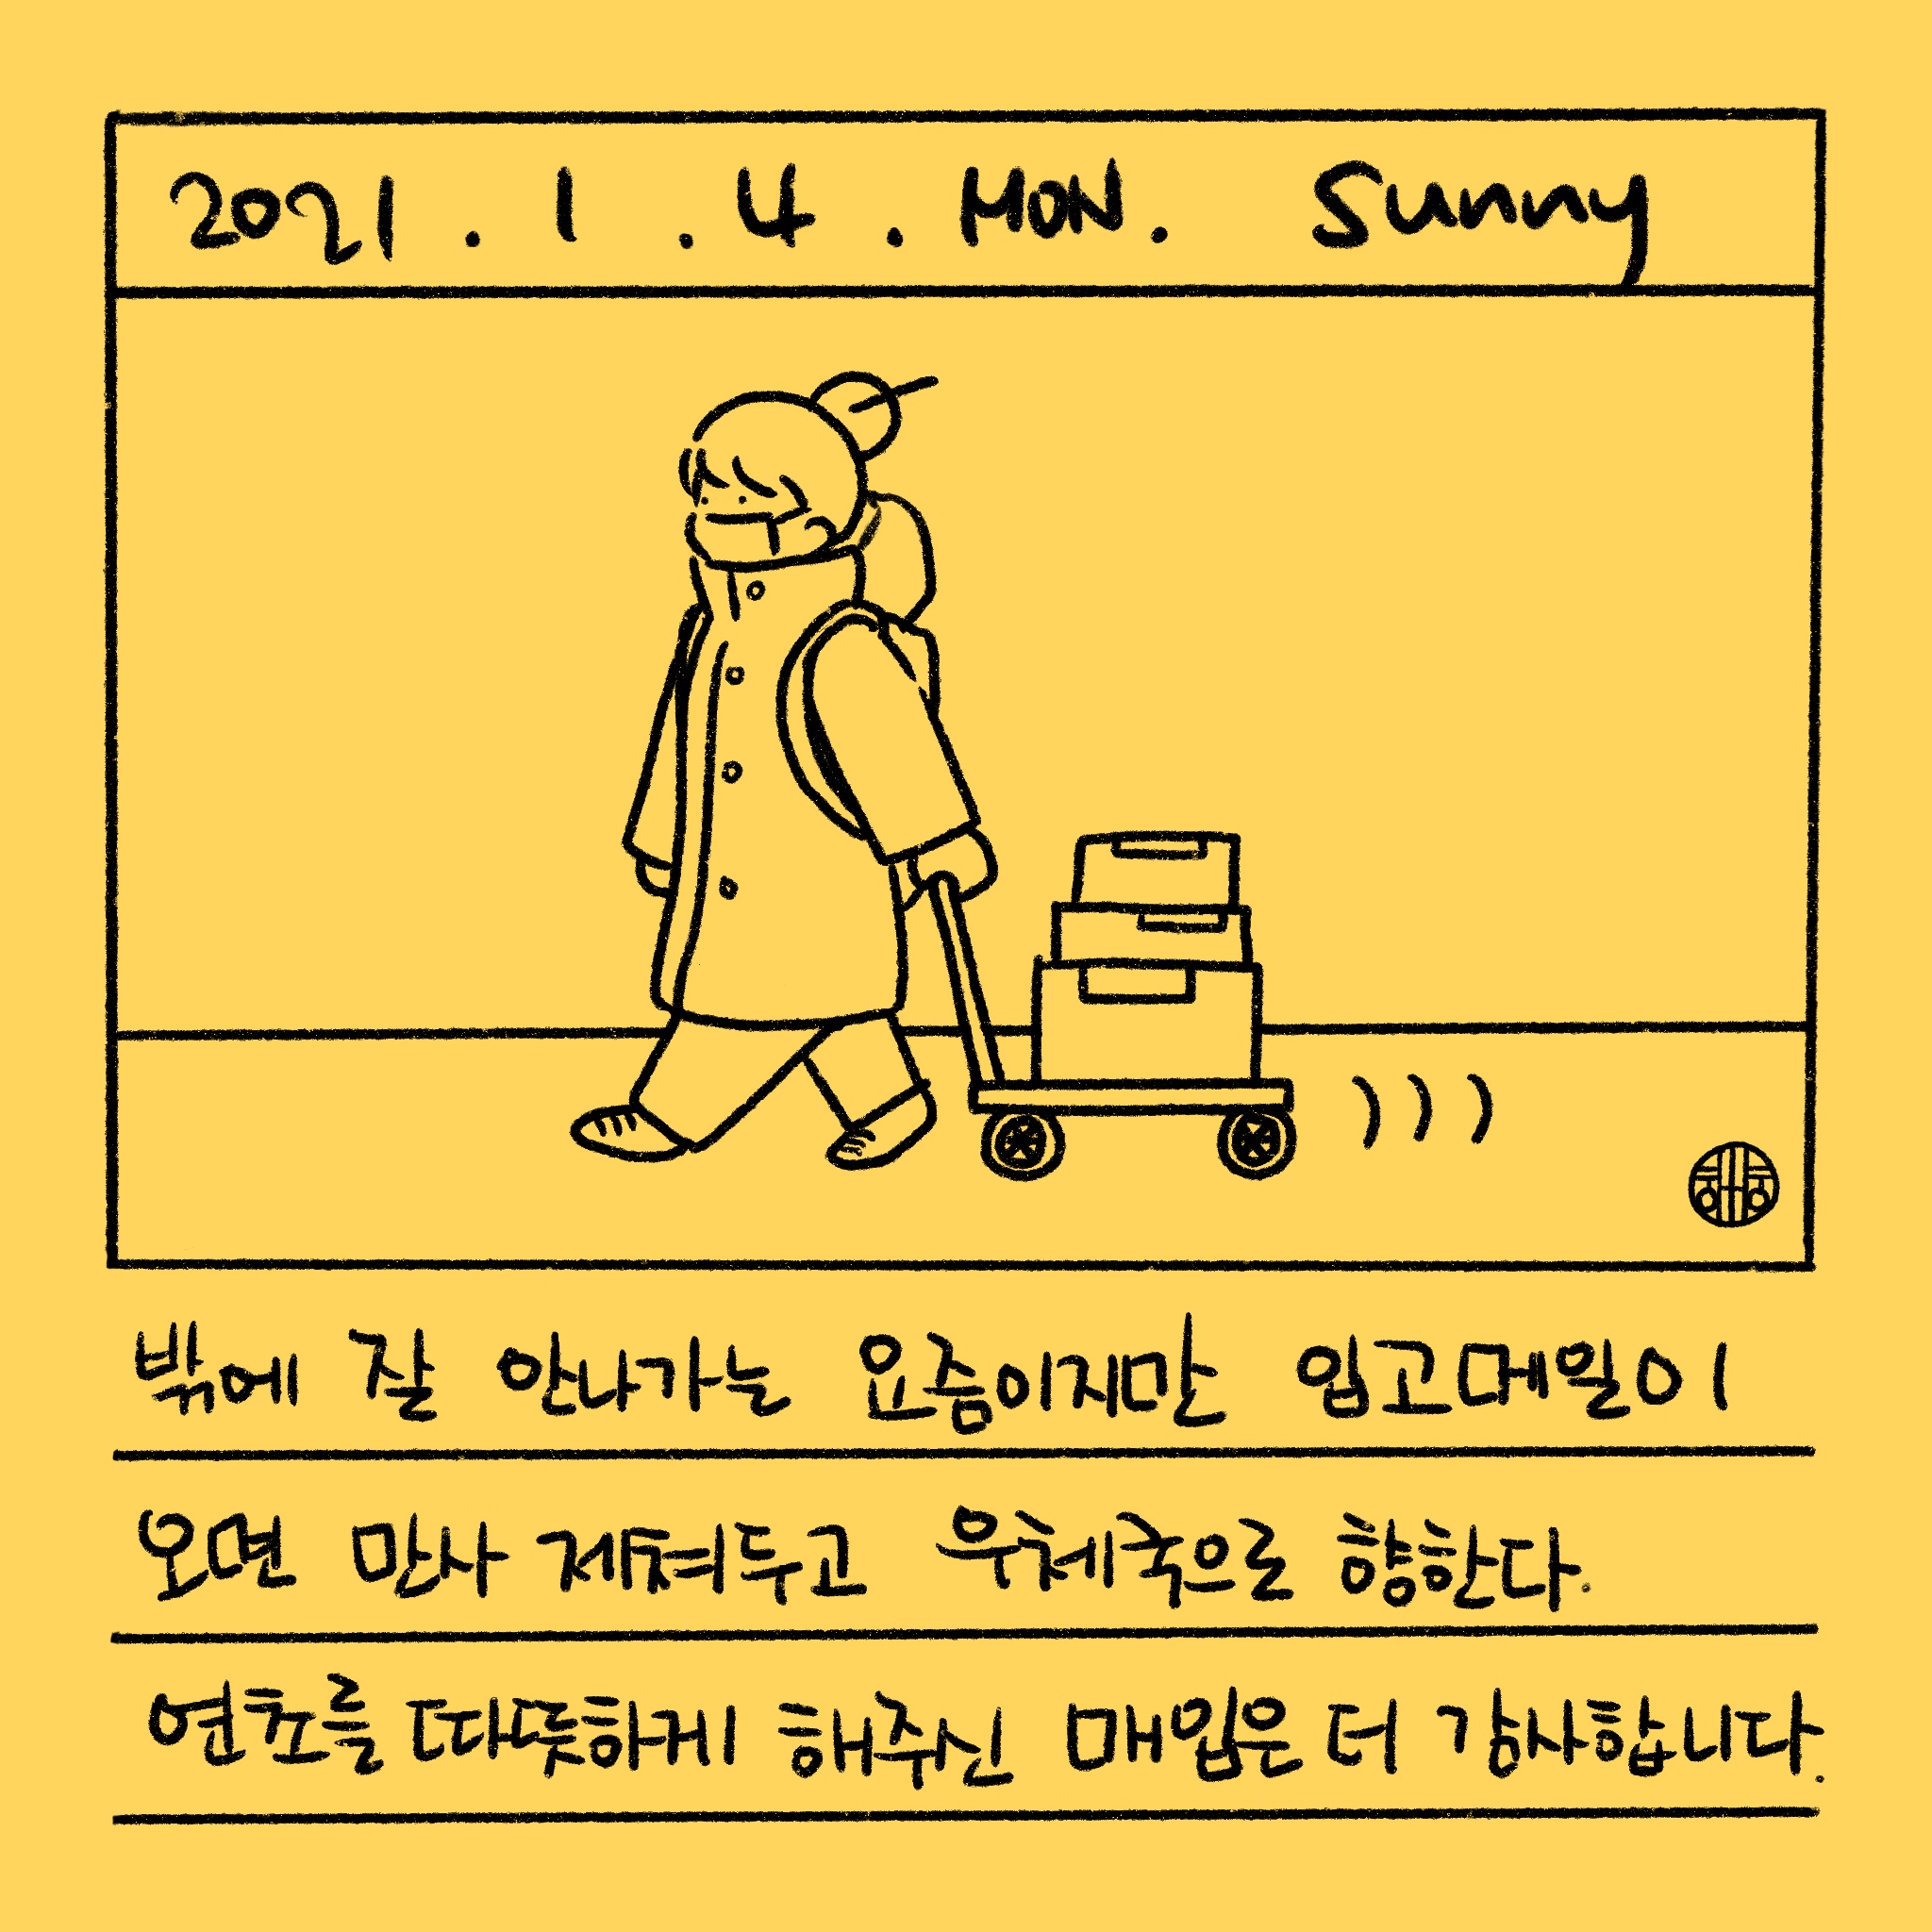 2021 . 1 . 4 . MON. Sunny
밖에 잘 안나가는 요즘이지만 입고메일이
오면 만사 제쳐두고 우체국으로 향한다.
연초를 따뜻하게 해주신 매입은 더 감사합니다.